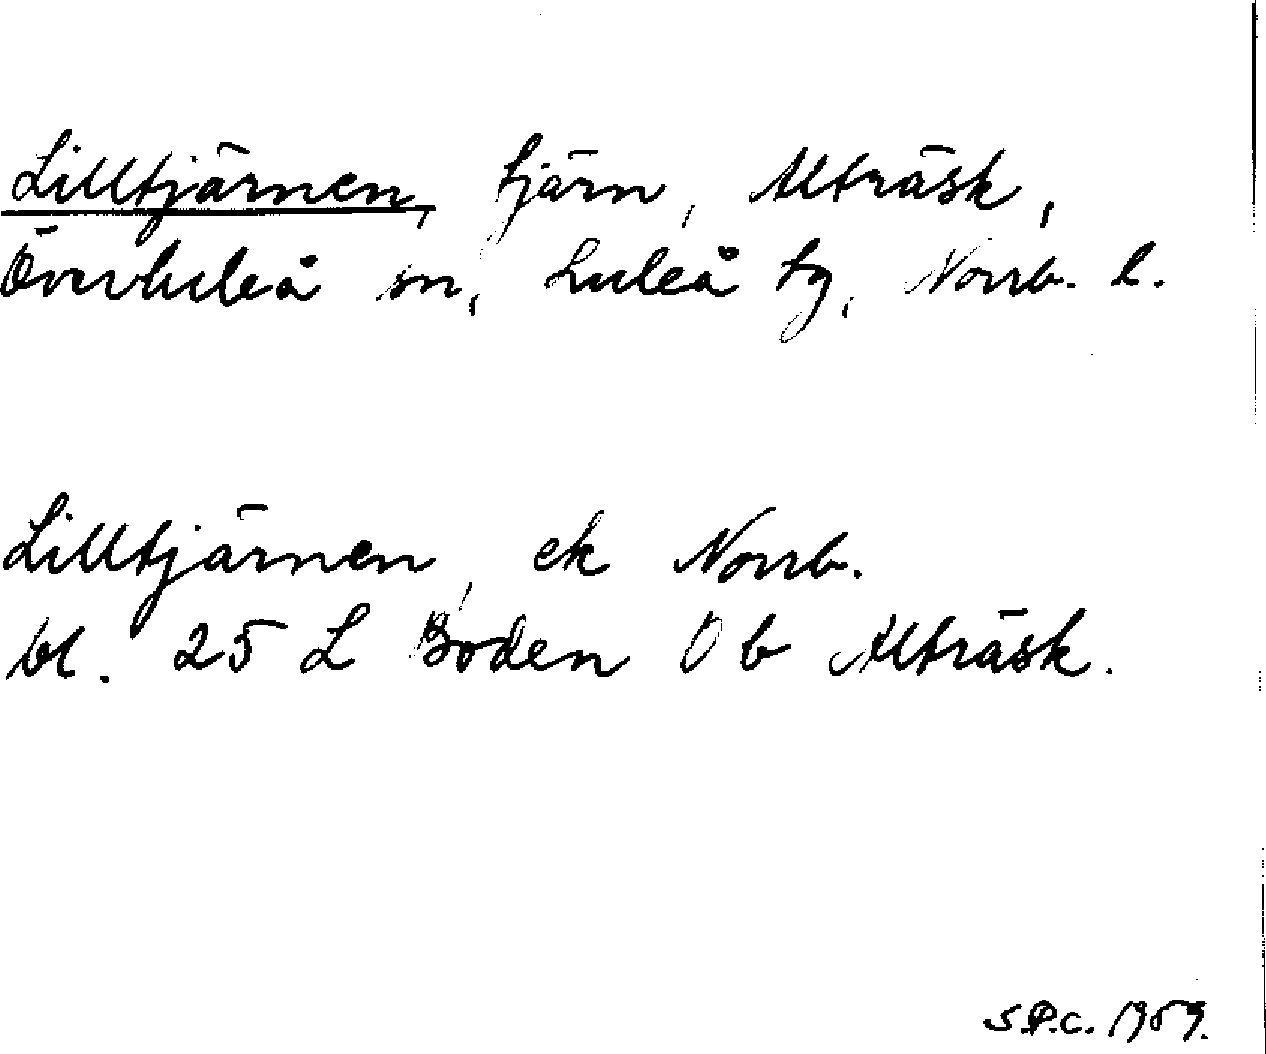 Lilltjärnen, tjärn, Alträsk,
Överluleå sn, Luleå tg, Norrb. l.
Lilltjärnen, ek Norrb.
bl. 25 L Boden 0 b Alträsk.
S.P.C. 1959.